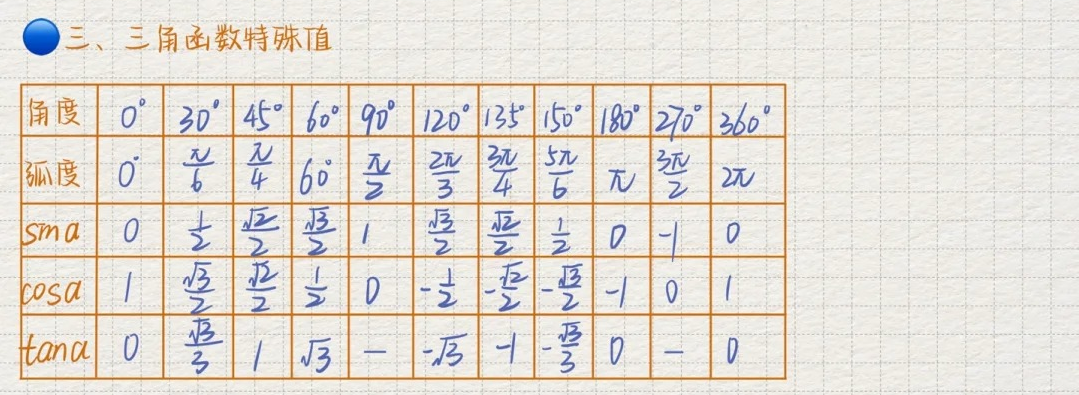 三、三角函数特殊值
角度 0° 30° 45° 60° 90° 120° 135° 150° 180° 270° 360°
弧度 0° π/6 π/4 60° π/2 2π/3 3π/4 5π/6 π 3π/2 2π
sina 0 1/2 √2/2 √3/2 1 √3/2 √2/2 1/2 0 -1 0
cosa 1 √3/2 √2/2 1/2 0 -1/2 -√2/2 -√3/2 -1 0 1
tana 0 √3/3 1 √3 — -√3 -1 -√3/3 0 — 0